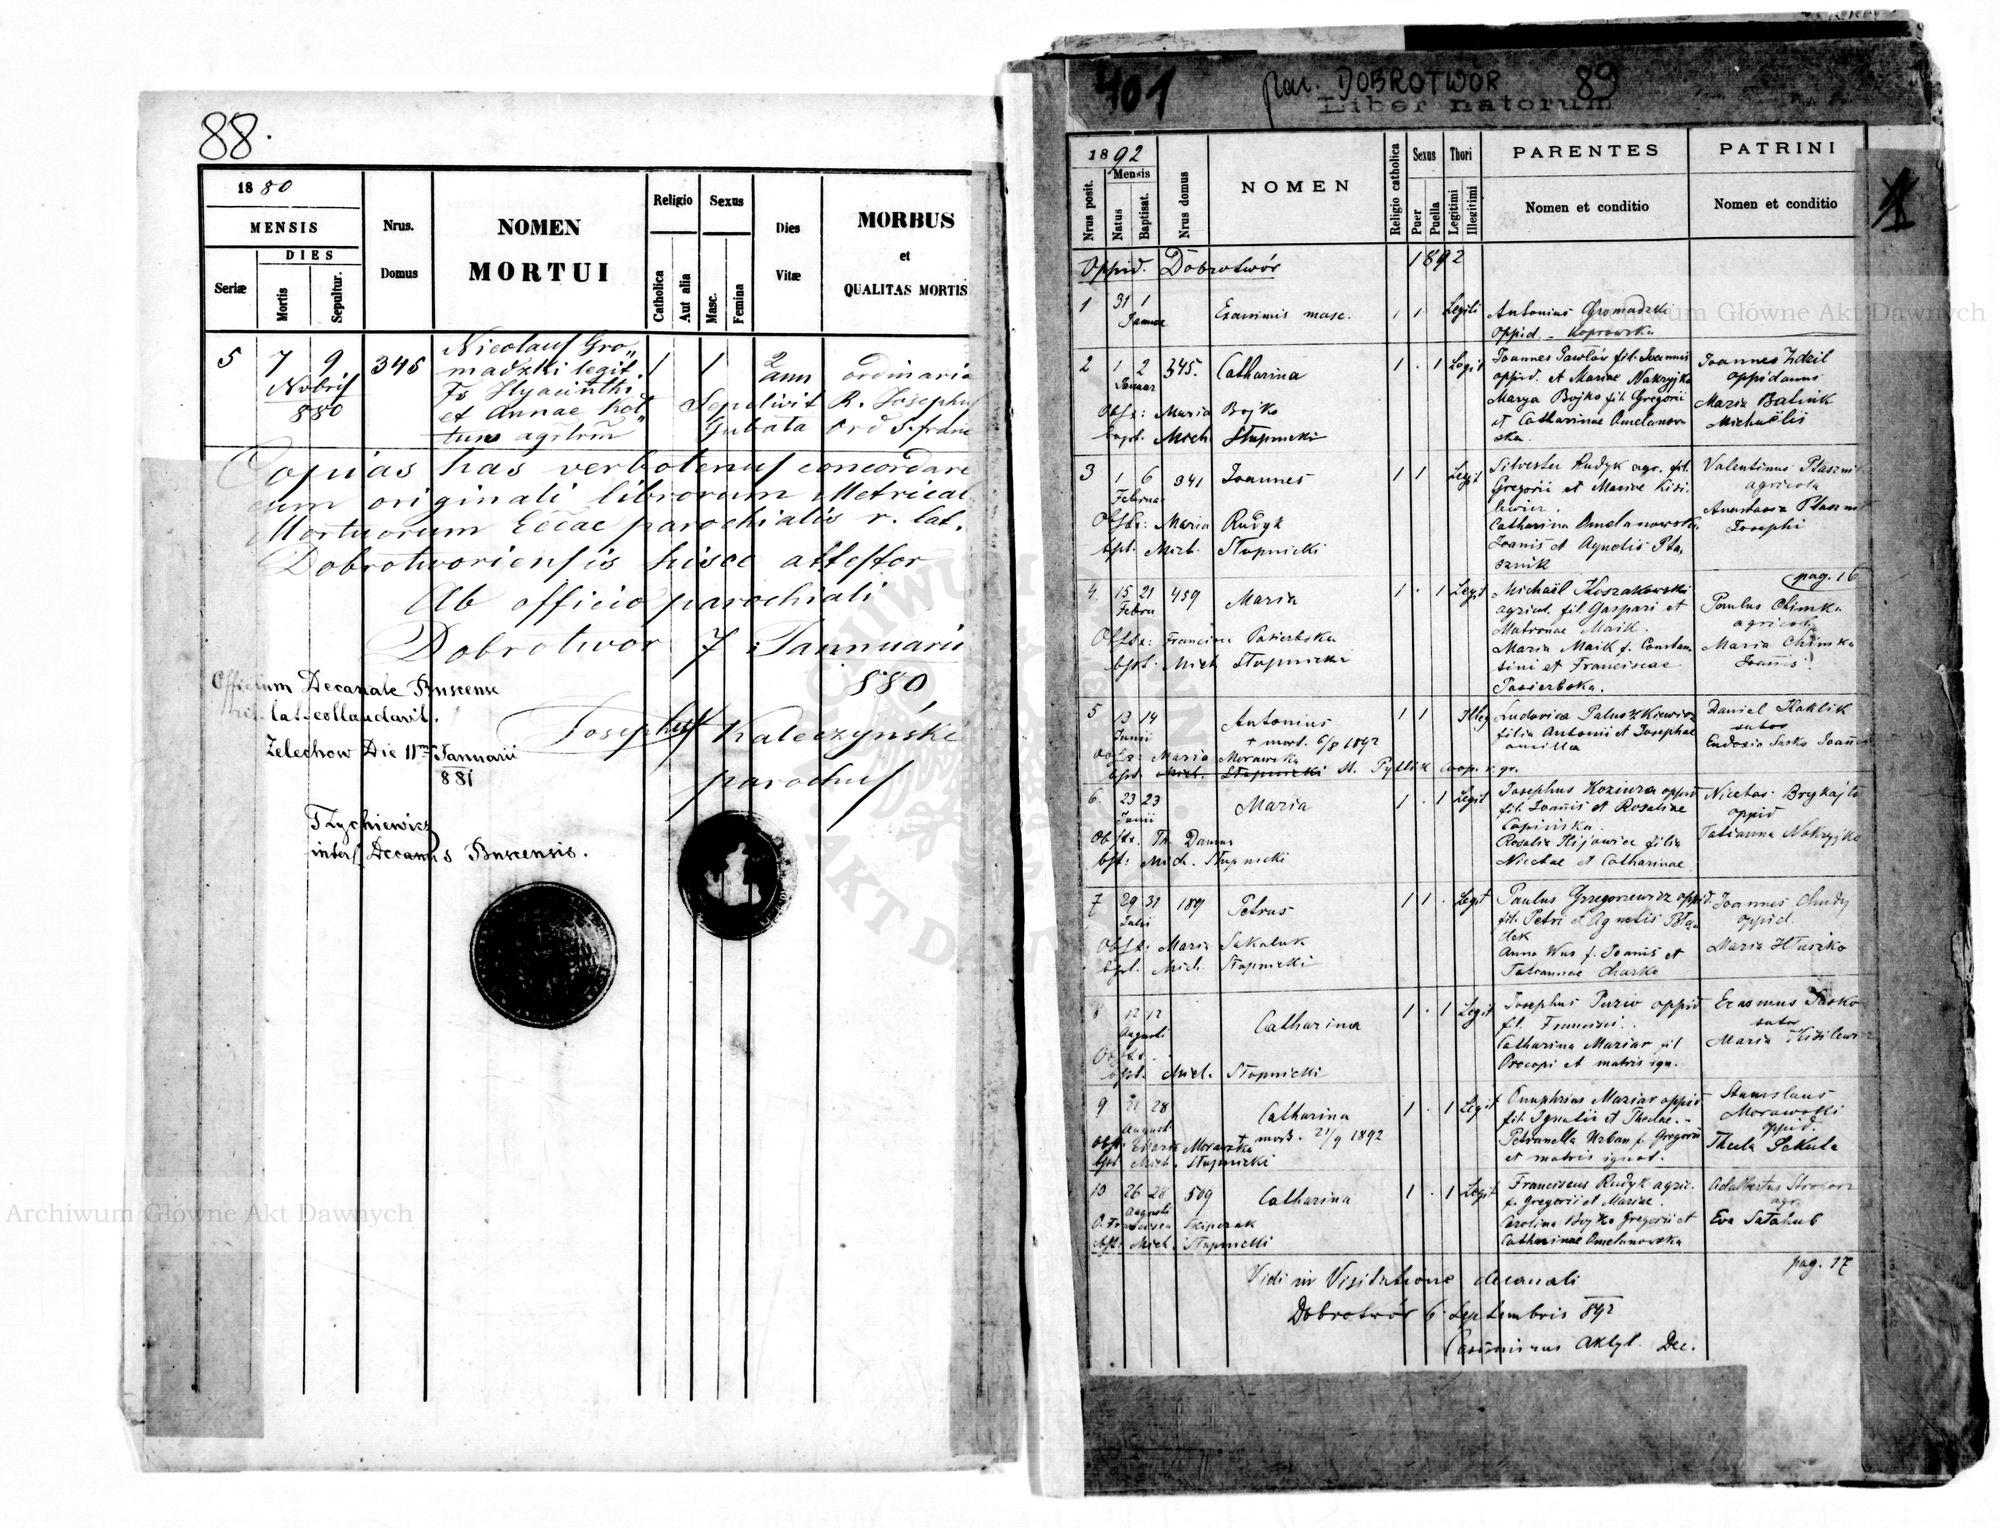 88.
1880
MENSIS
DIES
Seriæ
Mortis
Sepultur.
Nrus.
Domus
NOMEN
MORTUI
Religio
Catholica
Aut alia
Sexus
Masc.
Femina
Dies
Vitæ
MORBUS
et
QUALITAS MORTIS
5 7 9 345 Nicolaus Gro„ 1 1 2 ordinaria
Nobris madzki legit. ann
880 Fs Hyacinthi Sepelivit R. Josephus
et Annae Kot„ Gubata ord S. franc
tun agrlrm
Copias has verbotenus concordare
cum originali librorum Metricae
Mortuorum Eccae parochialis r. lat.
Dobrotworiensis hisce attestor
Ab officio parochiali
Dobrotwor 7 Jannuarii
880
Josephus Kaleczynski
parochus
Officium Decanale Buscense
rit. lat. collaudavit.
Zelechow Die 11 Januarii
881
Tzychiewicz
inters Decanus Buscensis.
401
par. DOBROTWÓR 89
Liber natorum
1
1892
Mensis
Nrus posit.
Natus
Baptisat.
Nrus domus
NOMEN
Religio catholica
Sexus
Puer
Puella
Thori
Legitimi
Illegitimi
PARENTES
Nomen et conditio
PATRINI
Nomen et conditio
Oppid. Dobrotwór 1892
1 31 1 Exanimis masc. 1 1 Legiti Antonius Gromadzki
Januar oppid - Koprowska
2 1 2 345. Catharina 1 . 1 Legit Joannes Pawlów fil. Joannis Joannes Zdzil
Januar oppid. et Mariae Nakryjko oppidanus
Obst: Maria Bojko Marya Bojko fil. Gregorii Maria Batiuk
bapt. Mich. Stupnicki et Catharinae Omelanow Michaëlis
ska.
3 1 6 341 Joannes 1 1 Legit Silvester Rudyk agr. fil. Valentinus Ptasznik
Februar Gregorii et Mariae Kisi- agricola
lewicz. Anastasia Ptasznik
Obst: Maria Rudyk Catharina Omelanowska Josephi
bpt. Mich. Stupnicki Joanis et Agnetis Pta-
sznik
pag. 16
4 15 21 459 Maria 1 . 1 Legit Michaël Koszakowski Paulus Chimka
Febru agricol. fil. Gaspari et agricola
Matronae Maik. Maria Chimka
Obst: Francisca Pasierbska Maria Maik f. Constan- Joanis.
bpt. Mich Stupnicki tini et Franciscae
Pasierbska.
5 13 14 Antonius 1 1 Illeg Ludovica Paluszkiewicz Daniel Haklik
Junii + mort. 6/8 1892 filia Antonii et Josephae sutor
Obst: Maria Morawska ancilla Eudosia Sasko Joannis
bpt. Mich. Stupnicki St. Pyllik Coop. r. gr.
6. 23 23 Maria 1 . 1 Legit Josephus Koziura oppid Nicetas Brykajło
Junii fil. Joanis et Rosaliae oppid
Obst. Th. Danus Capińska. Tatianna Nakryjko
bpt: Mich. Stupnicki Rosalia Hijowicz filia
Nicetae et Catharinae
7 29 31 189 Petrus 1 1 . Legit Paulus Grzegorzewicz oppid. Joannes Chudy
Julii fil. Petri et Agnetis oppid.
Obst: Maria Sakaluk Anna Wus f. Joanis et Maria Hłuszko
bpt. Mich. Stupnicki Tatiannae Charko
8 12 12 Catharina 1 . 1 Legit Josephus Puzio oppid Erasmus Sasko
Augusti fil. Francisci. sutor
Obst. Catharina Maziar fil Maria Kisilewicz
bpt. Mich. Stupnicki Procopi et matris ign.
9 21 28 Catharina 1 . 1 Legit Onuphrius Maziar oppid Stanislaus
August + mort. 21/9 1892 fil. Ignatii et Theclae. Morawski
oppid.
Obst. Morawska Petronella Urban f. Gregorii Thecla Sekuta
bpt. Mich. Stupnicki et matris ignot.
10 26 28 509 Catharina 1 . 1 Legit Franciscus Rudyk agric. Adalbertus
Augusti f. Gregorii et Mariae. agr.
O. Francisca Skipczak Carolina Bojko Gregorii et Eva Sałahub
bpt. Mich. Stupnicki Catharinae Omelanowska
pag. 17
Vidi in Visitatione decanali
Dobrotwór 6 Septembris 892
Casimirus Dec.
Archiwum Główne Akt Dawnych
Archiwum Główne Akt Dawnych
ARCHIWUM GŁÓWNE AKT DAWNYCH